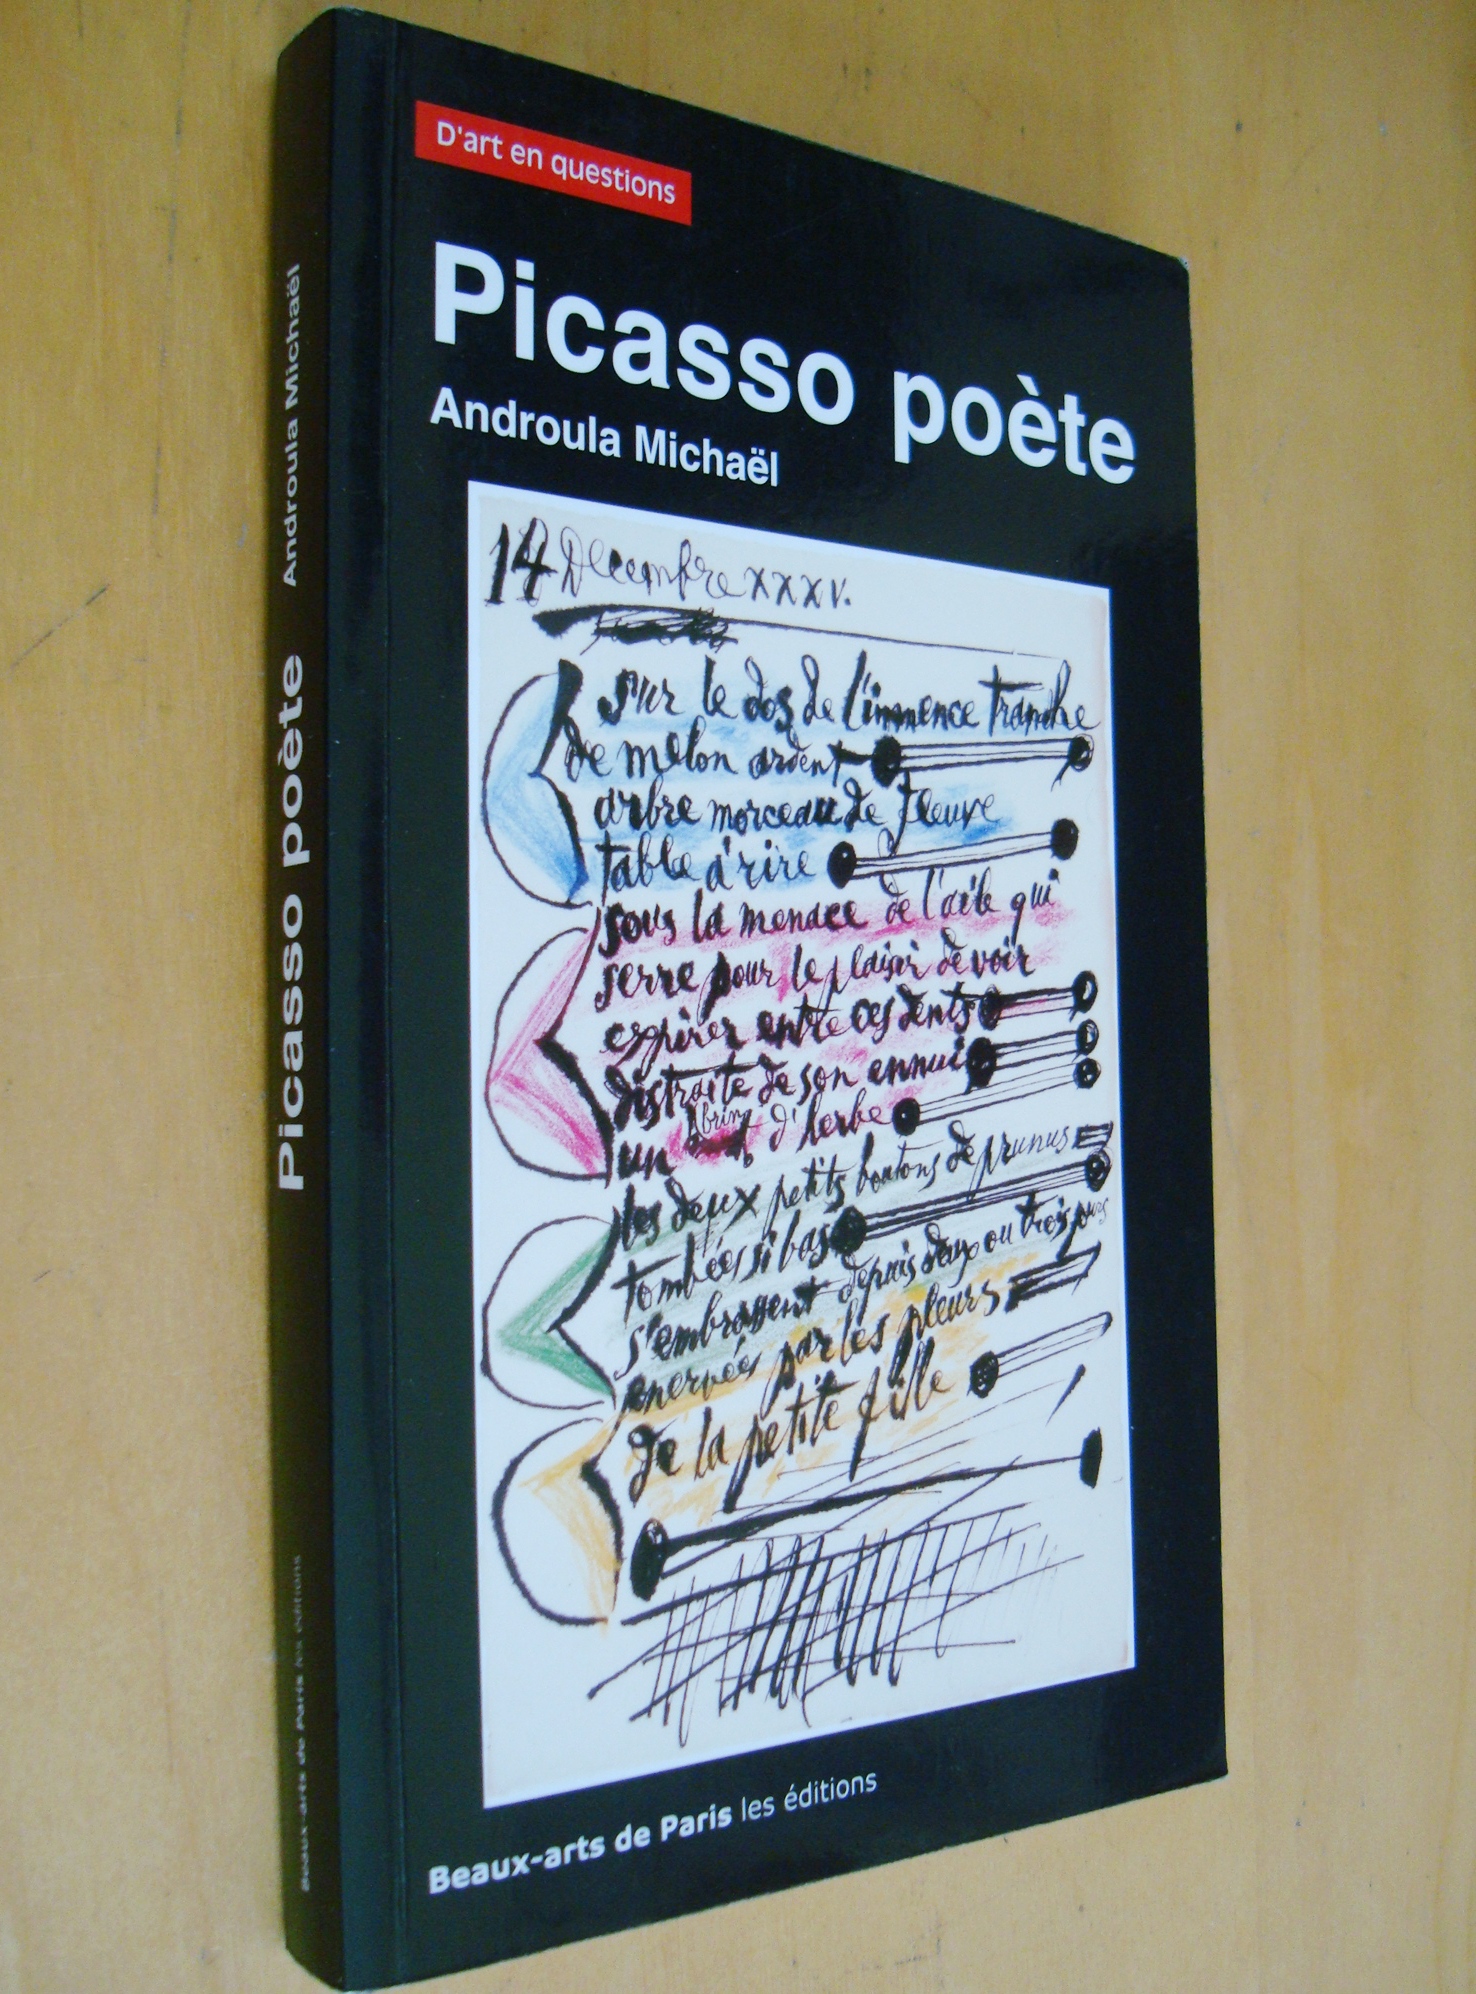 D'art en questions
Picasso poète
Androula Michaël
14 Decembre XXXV.
sur le dos de l'immence tranche
de melon ardent
arbre morceau de fleuve
table à rire
sous la menace de l'aile qui
serre pour le plaisir de voir
expirer entre ces dents
distraite de son ennui
brin
un d'herbe
les deux petits boutons de prunus
tombées si bas
s'embrassent depuis deux ou trois jours
enervées par les pleurs
de la petite fille
Beaux-arts de Paris les éditions
Picasso poète Androula Michaël
Beaux-arts de Paris les éditions